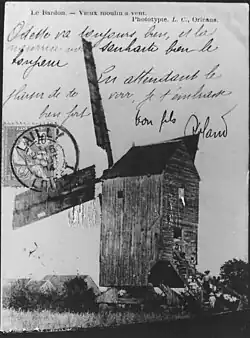 Le Bardon. — Vieux moulin à vent.
Phototypie L. C., Orléans.
Odette va toujours bien, et la
souhaite bien le
bonjour En attendant le
plaisir de te voir, Je t'embrasse
bien fort bon fils
Roland
LAILLY
LOIRET